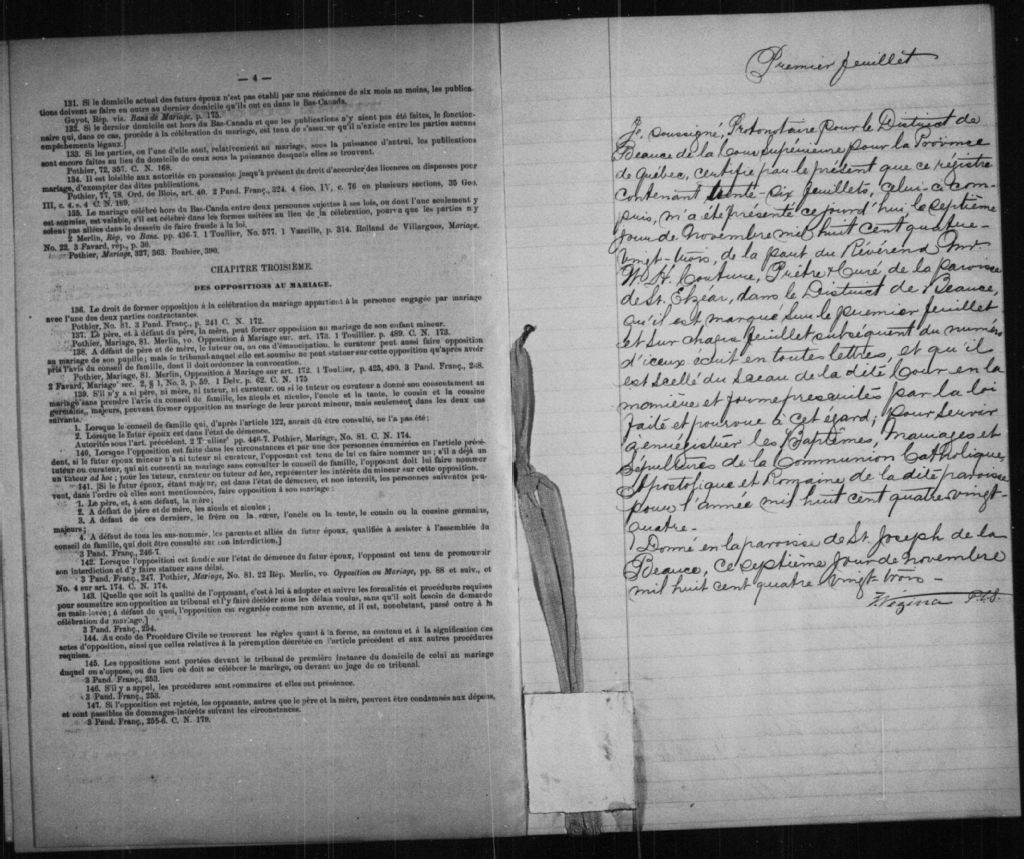 — 4 —
131. Si le domicile actuel des futurs époux n'est pas établi par une résidence de six mois au moins, les publica-
tions doivent se faire en outre au dernier domicile qu'ils ont eu dans le Bas-Canada.
Guyot, Rép. vis. Bans de Mariage, p. 175.
132. Si le dernier domicile est hors du Bas-Canada et que les publications n'y aient pas été faites, le fonction-
naire qui, dans ce cas, procède à la célébration du mariage, est tenu de s'assurer qu'il n'existe entre les parties aucuns
empêchements légaux.]
133. Si les parties, ou l'une d'elle sont, relativement au mariage, sous la puissance d'autrui, les publications
sont encore faites au lieu du domicile de ceux sous la puissance desquels elles se trouvent.
Pothier, 72, 357. C. N. 168.
134. Il est loisible aux autorités en possession jusqu'à présent de droit d'accorder des licences ou dispenses pour
mariage, d'exempter des dites publications.
Pothier, 77, 78. Ord. de Blois, art. 40. 2 Pand. Franç., 324. 4 Geo. IV, c. 76 en plusieurs sections, 35 Geo.
III, c. 4. s. 4 C. N. 169.
135. Le mariage célébré hors du Bas-Canada entre deux personnes sujettes à ses lois, ou dont l'une seulement y
est soumise, est valable, s'il est célébré dans les formes usitées au lieu de la célébration, pourvu que les parties n'y
soient pas allées dans le dessein de faire fraude à la loi.
2 Merlin, Rép. vo Bans. pp. 436-7. 1 Toullier, No. 577. 1 Vazeille, p. 314. Rolland de Villargues, Mariage,
No. 22. 3 Favard, rép., p. 30.
Pothier, Mariage, 327, 363. Bouhier, 390.
CHAPITRE TROISIÈME.
DES OPPOSITIONS AU MARIAGE.
136. Le droit de former opposition à la célébration du mariage appartient à la personne engagée par mariage
avec l'une des deux parties contractantes.
Pothier, No. 81. 3 Pand. Franç., p. 241 C. N. 172.
137. Le père, et à défaut du père, la mère, peut former opposition au mariage de son enfant mineur.
Pothier, Mariage, 81. Merlin, vo. Opposition à Mariage sur. art. 173. 1 Touillier. p. 489. C. N. 173.
138. A défaut de père et de mère, le tuteur ou, au cas d'émancipation, le curateur peut aussi faire opposition
au mariage de son pupille; mais le tribunal auquel elle est soumise ne peut statuer sur cette opposition qu'après avoir
pris l'avis du conseil de famille, dont il doit ordonner la convocation.
Pothier, Mariage, 81. Merlin, Opposition à Mariage sur art. 172. 1 Toullier, p. 425, 490. 3 Pand. Franç., 248.
2 Favard, Mariage, sec. 2, § 1, No. 3, p. 59. 1 Delv. p. 62. C. N. 175
139. S'il n'y a ni père, ni mère, ni tuteur, ni curateur, ou si le tuteur ou curateur a donné son consentement au
mariage sans prendre l'avis du conseil de famille, les aïeuls et aïeules, l'oncle et la tante, le cousin et la cousine
germains, majeurs, peuvent former opposition au mariage de leur parent mineur, mais seulement dans les deux cas
suivants:
1. Lorsque le conseil de famille qui, d'après l'article 122, aurait dû être consulté, ne l'a pas été;
2. Lorsque le futur époux est dans l'état de démence.
Autorités sous l'art. précédent. 2 Toullier pp. 446-7. Pothier, Mariage, No. 81. C. N. 174.
140. Lorsque l'opposition est faite dans les circonstances et par une des personnes énumérées en l'article précé-
dent, si le futur époux mineur n'a ni tuteur ni curateur, l'opposant est tenu de lui en faire nommer un; s'il a déjà un
tuteur ou curateur, qui ait consenti au mariage sans consulter le conseil de famille, l'opposant doit lui faire nommer
un tuteur ad hoc; pour les tuteur, curateur ou tuteur ad hoc, représenter les intérêts du mineur sur cette opposition.
141. [Si le futur époux, étant majeur, est dans l'état de démence, et non interdit, les personnes suivantes peu-
vent, dans l'ordre où elles sont mentionnées, faire opposition à son mariage:
1. Le père, et, à son défaut, la mère;
2. A défaut de père et de mère, les aïeuls et aïeules;
3. A défaut de ces derniers, le frère ou la sœur, l'oncle ou la tante, le cousin ou la cousine germains,
majeurs;
4. A défaut de tous les sus-nommés, les parents et alliés du futur époux, qualifiés à assister à l'assemblée du
conseil de famille, qui doit être consulté sur son interdiction.]
3 Pand. Franç., 246-7.
142. Lorsque l'opposition est fondée sur l'état de démence du futur époux, l'opposant est tenu de promouvoir
son interdiction et d'y faire statuer sans délai.
3 Pand. Franç., 247. Pothier, Mariage, No. 81. 22 Rép. Merlin, vo. Opposition au Mariage, pp. 88 et suiv., et
No. 4 sur art. 174. C. N. 174.
143. [Quelque soit la qualité de l'opposant, c'est à lui à adopter et suivre les formalités et procédures requises
pour soumettre son opposition au tribunal et l'y faire décider sous les délais voulus, sans qu'il soit besoin de demande
en main-levée; à défaut de quoi, l'opposition est regardée comme non avenue, et il est, nonobstant, passé outre à la
célébration du mariage.]
3 Pand. Franç., 254.
144. Au code de Procédure Civile se trouvent les règles quant à la forme, au contenu et à la signification des
actes d'opposition, ainsi que celles relatives à la péremption décrétée en l'article précédent et aux autres procédures
requises.
145. Les oppositions sont portées devant le tribunal de première instance du domicile de celui au mariage
duquel on s'oppose, ou du lieu où doit se célébrer le mariage, ou devant un juge de ce tribunal.
3 Pand. Franç., 253.
146. S'il y a appel, les procédures sont sommaires et elles ont préséance.
3 Pand. Franç., 253.
147. Si l'opposition est rejetée, les opposants, autres que le père et la mère, peuvent être condamnés aux dépens,
et sont passibles de dommages-intérêts suivant les circonstances.
3 Pand. Franç., 255-6. C. N. 179.
Premier feuillet
Je, soussigné, Protonotaire pour le District de
Beauce de la Cour supérieure pour la Province
de Québec, certifie par le présent que ce régistre
contenant trente-six feuillets, celui-ci com-
pris, m'a été présenté ce jourd'hui le septième
jour de Novembre mil huit cent quatre-
vingt-trois, de la part du Révérend Mr
W. H. Couture, Prêtre & Curé de la paroisse
de St. Elzéar, dans le District de Beauce,
qu'il est marqué sur le premier feuillet
et sur chaque feuillet subséquent du numéro
d'iceux écrit en toutes lettres, et qu'il
est scellé du sceau de la dite Cour en la
manière et forme prescrites par la loi
faite et pourvue à cet égard; pour servir
à enrégistrer les Baptêmes, Mariages et
Sépultures de la Communion Catholique,
Apostolique et Romaine de la dite paroisse
pour l'année mil huit cent quatre-vingt-
quatre.
Donné en la paroisse de St Joseph de la
Beauce, ce septième jour de novembre
mil huit cent quatre vingt-trois –
Vézina P.C.S.